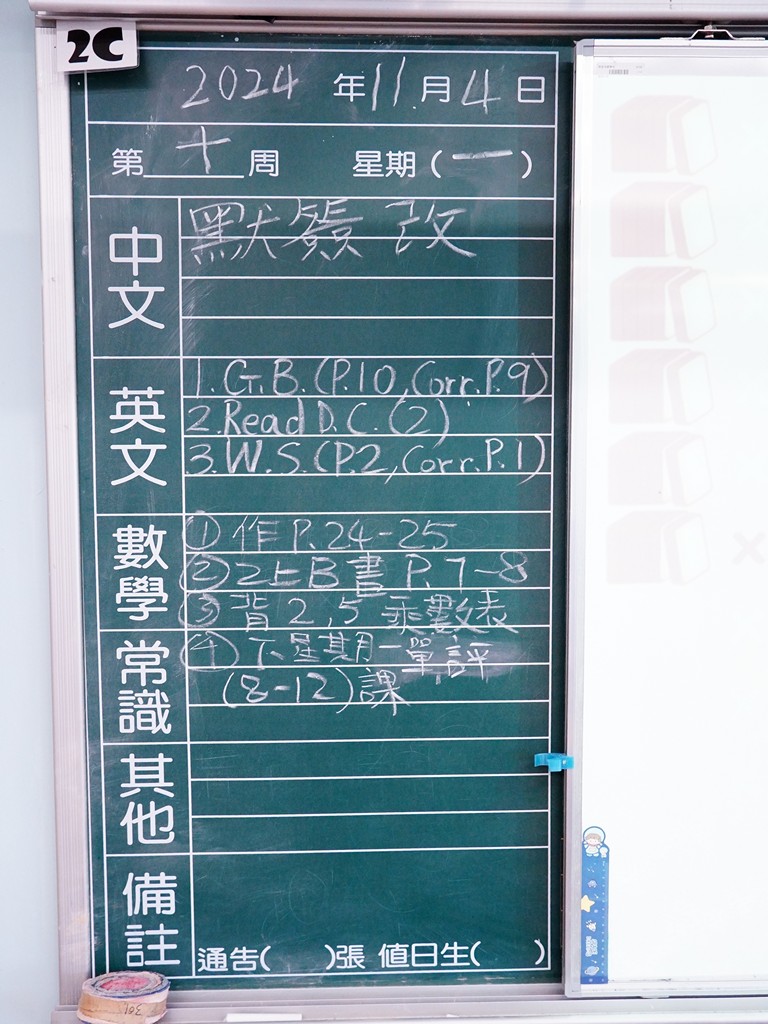 2C
2024年11月4日
第十周 星期(一)
中文
默簽改
英文
1.G.B.(P.10,Corr.P.9)
2.Read D.C.(2)
3.W.S.(P.2,Corr.P.1)
數學
①作P.24-25
②2上B書P.7-8
③背2,5乘數表
常識
④下星期一單評
(8-12)課
其他
備註
通告( )張 值日生( )